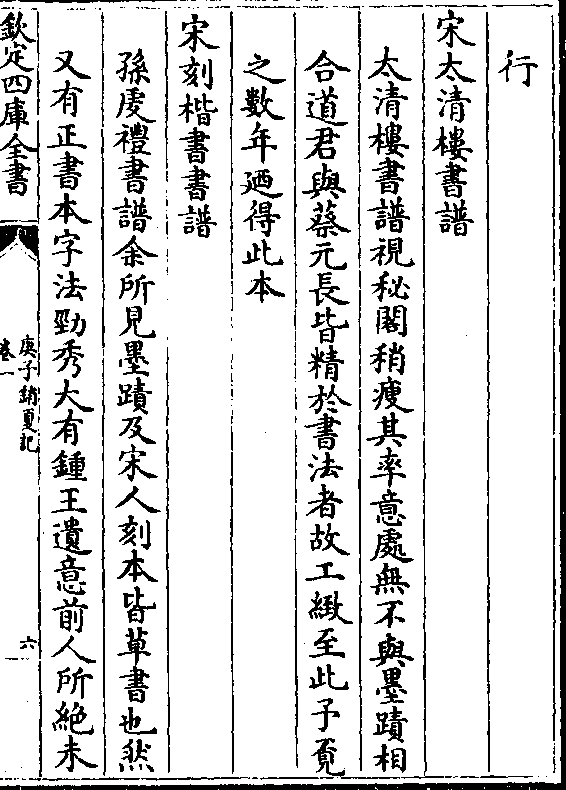 行
宋太清樓書譜
太清樓書譜視秘閣稍瘦其率意處無不與墨蹟相
合道君與蔡元長皆精於書法者故工緻至此予覔
之數年廼得此本
宋刻楷書書譜
孫䖍禮書譜余所見墨蹟及宋人刻本皆草書也然
又有正書本字法勁秀大有鍾王遺意前人所絶未
欽定四庫全書
庚子銷夏記
卷一
六